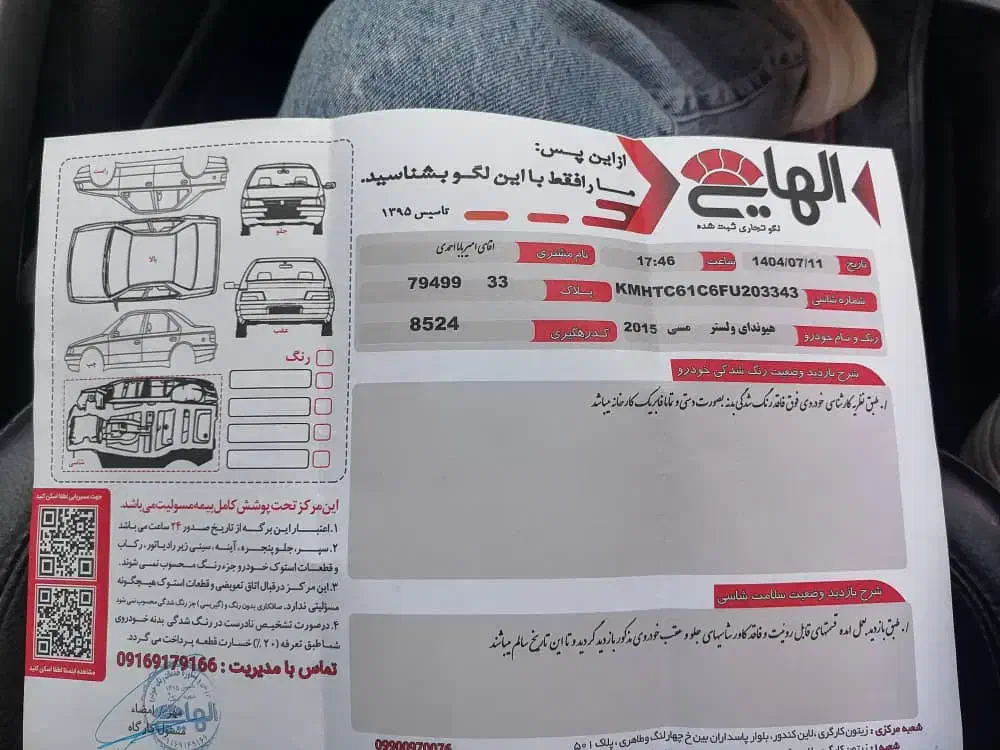 الهایی
لگو تجاری ثبت شده
از این پس:
ما را فقط با این لگو بشناسید.
تاسیس ۱۳۹۵
تاریخ 1404/07/11 ساعت 17:46 نام مشتری اقای امیر بابا احمدی
شماره شاسی KMHTC61C6FU203343 پـلاک 33 79499
رنگ و نـام خودرو هیوندای ولستر مسی 2015 کـدرهگیری 8524
شرح بازدید وضعیت رنگ شدگی خودرو
۱. طبق نظریه کارشناسی خودروی فوق فاقد رنگ شدگی بدنه بصورت دستی و تماما فابریک کارخانه میباشد
شرح بازدید وضعیت سلامت شاسی
۱. طبق بازدید بعمل امده قسمتهای قابل رویت و فاقد کاور شاسیهای جلو و عقب خودروی مذکور بازدید گردید و تا این تاریخ سالم میباشند
شعبه مرکزی : زیتون کارگری ، لاین کندرو، بلوار پاسداران بین خ چهارلنگ و طاهری ، پلاک ۵۰۱
09900970076
راست
جلو
بالا
عقب
چپ
شاسی
رنگ
جهت مسیریابی لطفا اسکن کنید
مشاهده اینستا لطفا اسکن کنید
این مرکز تحت پوشش کامل بیمه مسولیت می باشد.
۱. اعتبار این برگه از تاریخ صدور ۲۴ ساعت می باشد
۲. سپر ، جلو پنجره ، آینه ، سینی زیر رادیاتور ، رکاب
و قطعات استوک خودرو جزء رنگ محسوب نمی شوند.
۳. این مرکز در قبال اتاق تعویضی و قطعات استوک هیچگونه
مسؤلیتی ندارد. صافکاری بدون رنگ و (گیرسی) جز رنگ شدگی محسوب نمی شود
۴. درصورت تشخیص نادرست در رنگ شدگی بدنه خودروی
شما طبق تعرفه (۲۰٪) خسارت قطعه پرداخت می گردد.
تماس با مدیریت : 09169179166
مهر و امضاء
مسئول کارگاه
الهایی